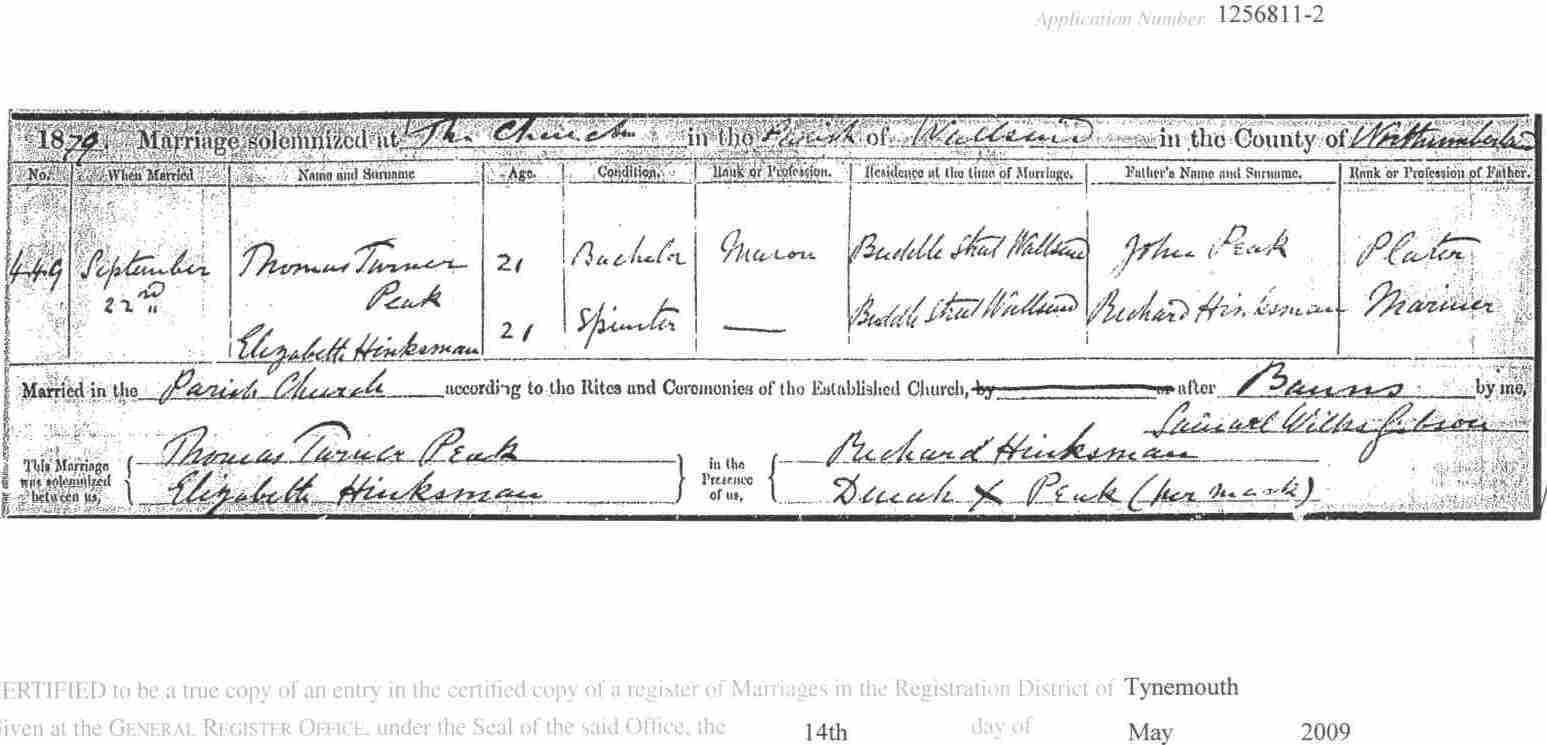 Application Number 1256811-2
1879. Marriage solemnized at The Church in the Parish of Wallsend in the County of Northumberland
No. When Married Name and Surname Age. Condition. Rank or Profession. Residence at the time of Marriage. Father's Name and Surname. Rank or Profession of Father.
449 September Thomas Turner 21 Bachelor Mason Buddle Street Wallsend John Peak Plater
22nd Peak
Elizabeth Hinksman 21 Spinster — Buddle Street Wallsend Richard Hinksman Mariner
Married in the Parish Church according to the Rites and Ceremonies of the Established Church, by or after Banns by me,
Samuel Wilks Gibson
This Marriage was solemnized between us, Thomas Turner Peak in the Presence of us, Richard Hinksman
Elizabeth Hinksman X Peak (her mark)
ERTIFIED to be a true copy of an entry in the certified copy of a register of Marriages in the Registration District of Tynemouth
iven at the GENERAL REGISTER OFFICE, under the Seal of the said Office, the 14th day of May 2009